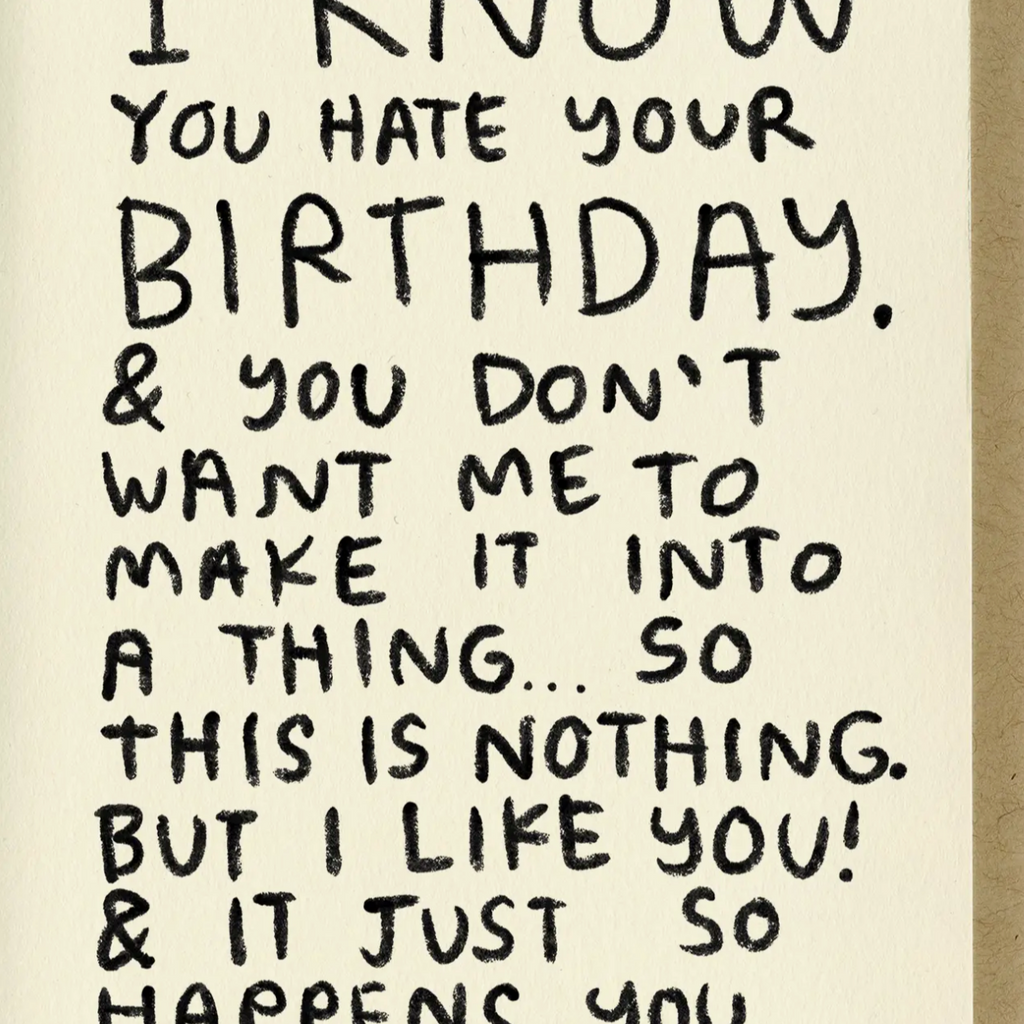 I KNOW
YOU HATE YOUR
BIRTHDAY.
& YOU DON'T
WANT ME TO
MAKE IT INTO
A THING... SO
THIS IS NOTHING.
BUT I LIKE YOU!
& IT JUST SO
HAPPENS YOU